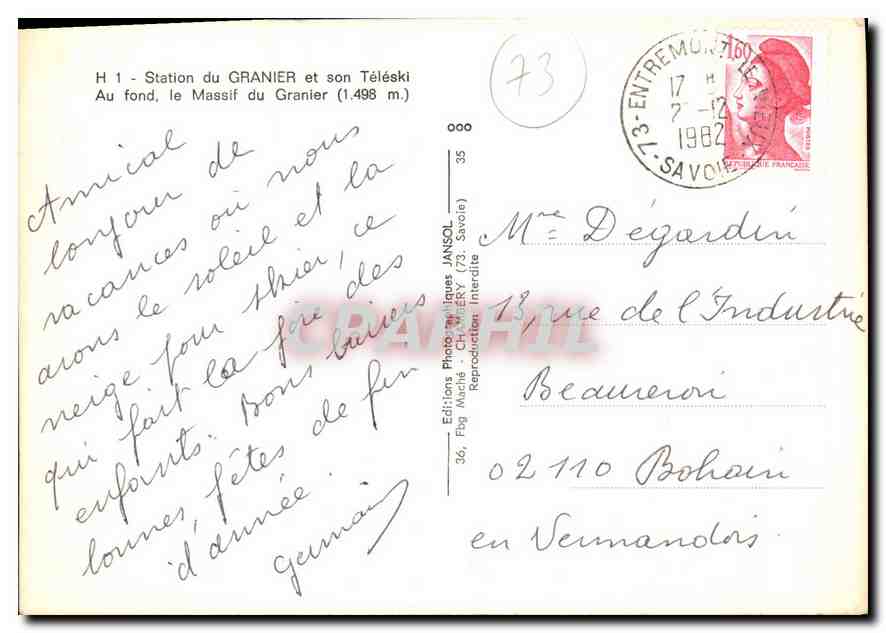 H 1 - Station du GRANIER et son Téléski
Au fond, le Massif du Granier (1.498 m.)
Amical
bonjour de
vacances où nous
avons le soleil et la
neige pour skier, ce
qui fait la joie des
enfants. Bons baisers
bonnes fêtes de fin
d'année.
Germain
73
35
Editions Photographiques JANSOL
36, Fbg Maché - CHAMBÉRY (73. Savoie)
Reproduction Interdite
73-ENTREMONT-LE-VIEUX
17 H
-12
1982
SAVOIE
1,60
POSTES
REPUBLIQUE FRANÇAISE
Mme Dégardin
13, rue de l'Industrie
Beaurevoir
02110 Bohain
en Vermandois.
CPAPHIL